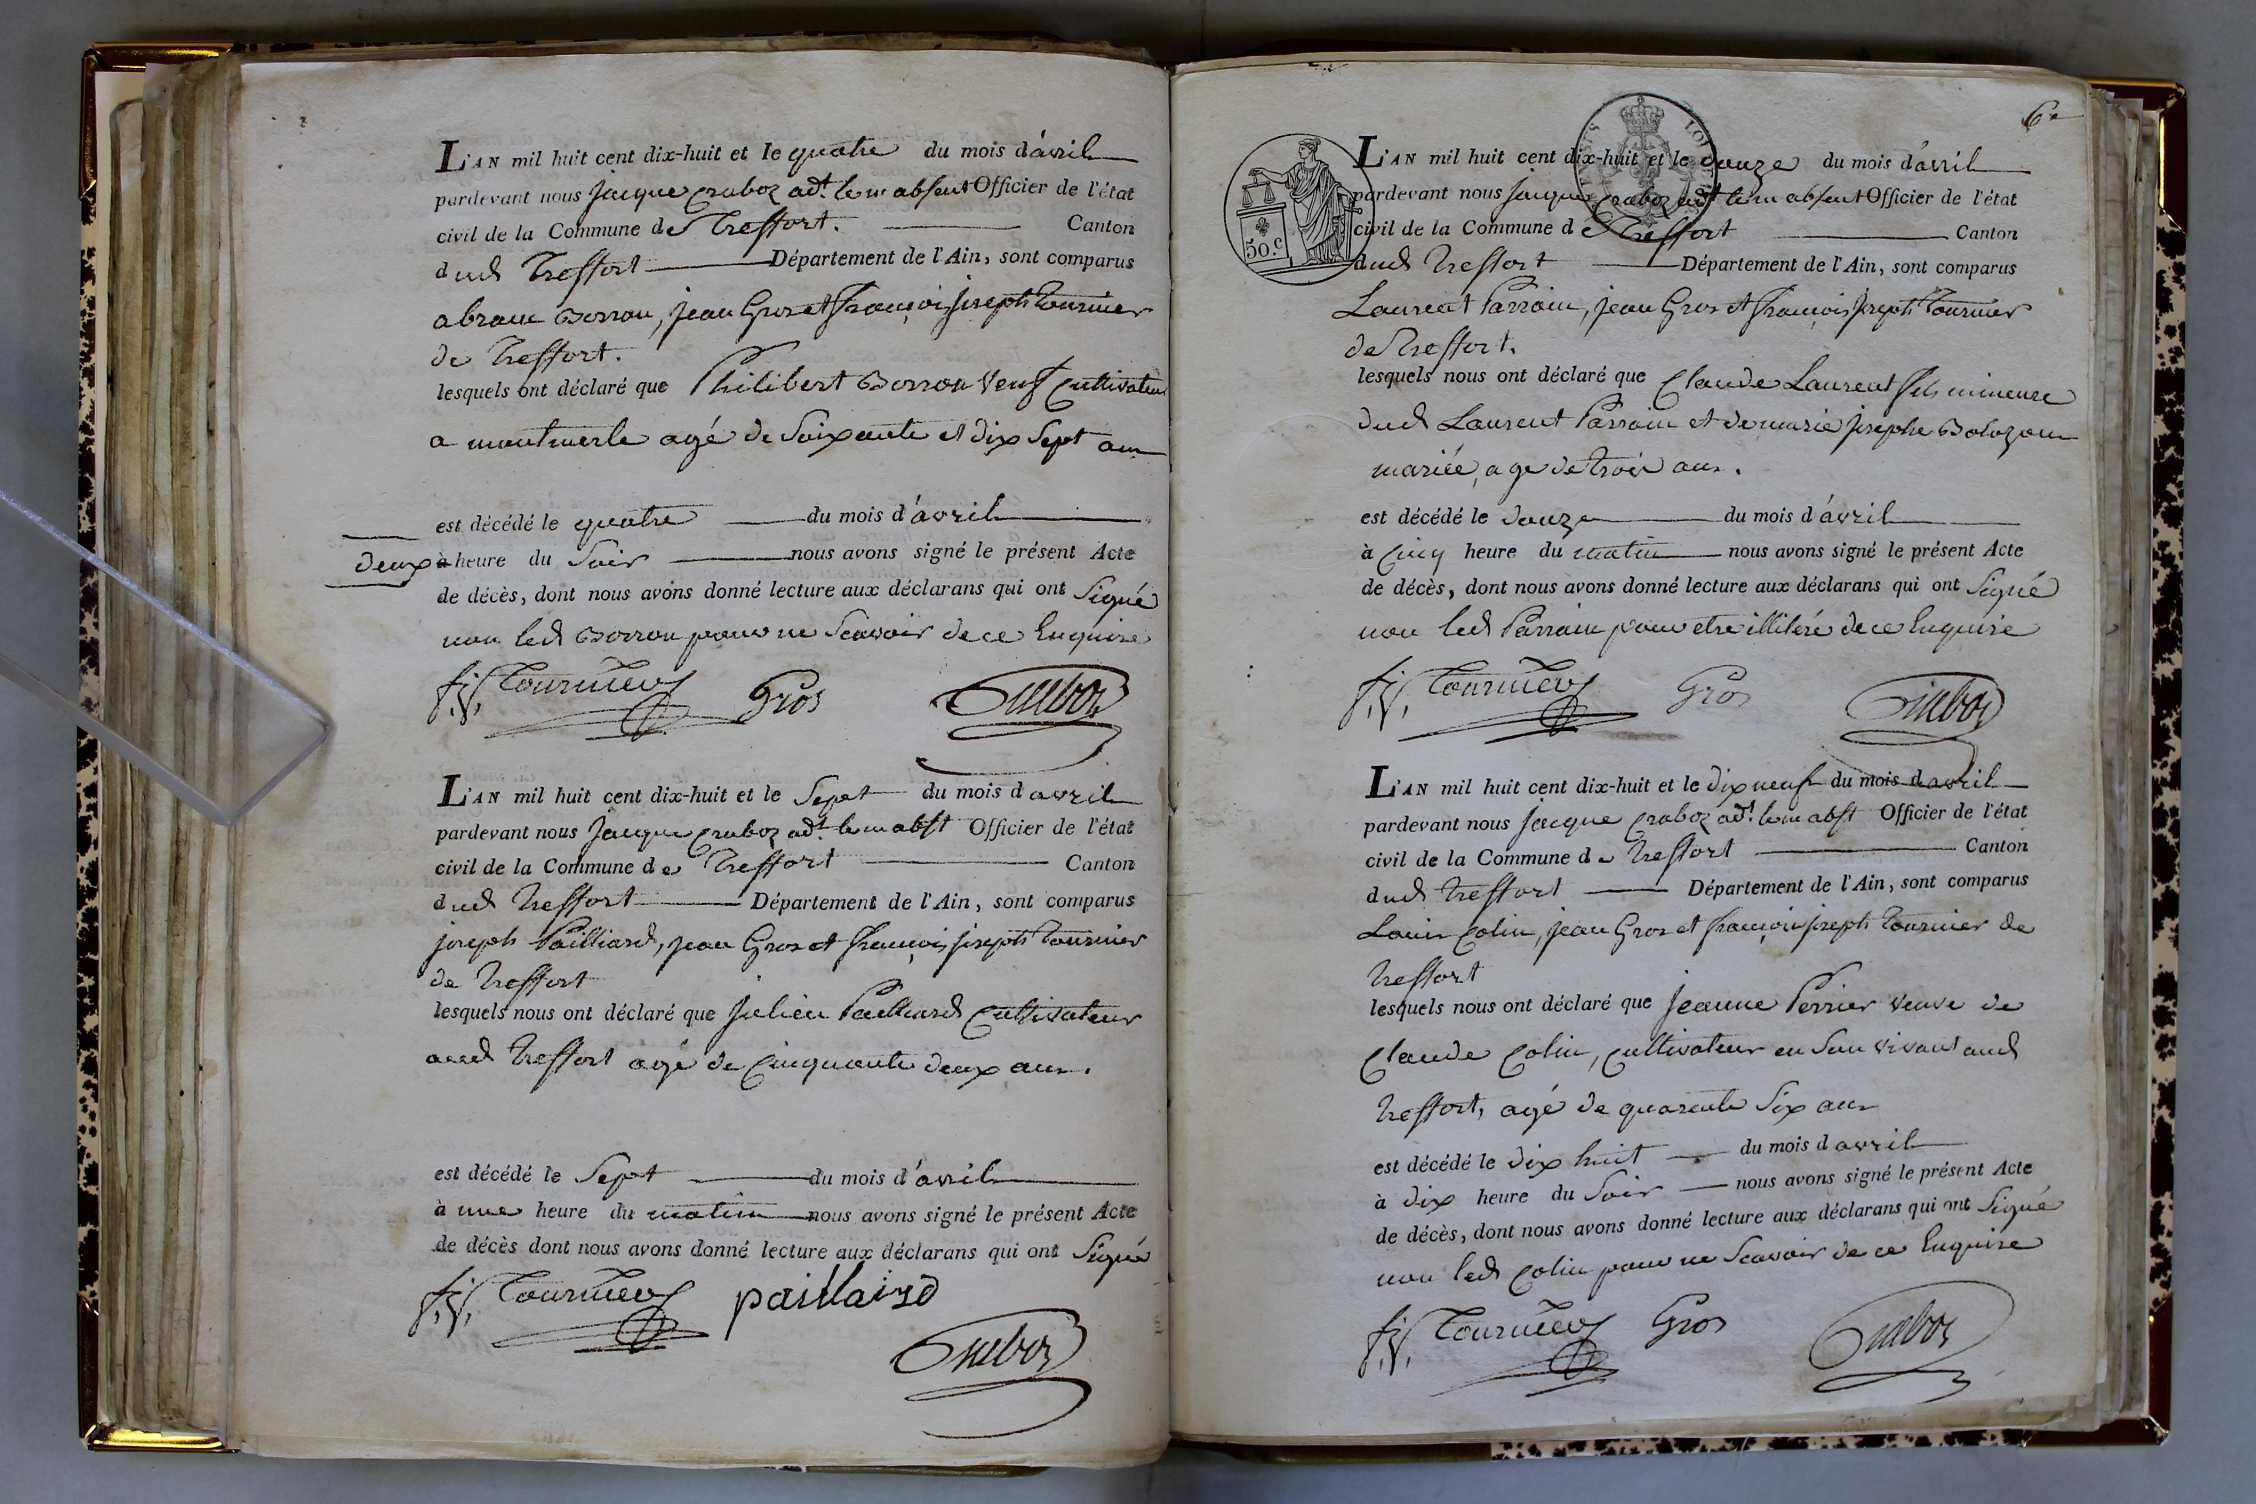 L'AN mil huit cent dix-huit et le quatre du mois d'avril
pardevant nous jacque Craboz adt. le m absent Officier de l'état
civil de la Commune de Treffort. Canton
dud Treffort Département de l'Ain, sont comparus
abram Borron, jean Gros et françois joseph Tournier
de Treffort.
lesquels ont déclaré que Philibert Borron veuf Cultivateur
a montmerle agé de Soixante et dix Sept ans
est décédé le quatre du mois d'avril
deux à heure du Soir nous avons signé le présent Acte
de décès, dont nous avons donné lecture aux déclarans qui ont Signé
non led Borron pour ne Scavoir de ce Enquire
f. j. Tournier Gros Craboz
L'AN mil huit cent dix-huit et le Sept du mois d avril
pardevant nous jacque Craboz adt. le m abst Officier de l'état
civil de la Commune de Treffort Canton
dud Treffort Département de l'Ain, sont comparus
joseph Pailliard, jean Gros et françois joseph Tournier
de Treffort
lesquels nous ont déclaré que julien Pailliard Cultivateur
aud Treffort agé de Cinquante deux ans.
est décédé le Sept du mois d'avril
à une heure du matin nous avons signé le présent Acte
de décès dont nous avons donné lecture aux déclarans qui ont Signé
f. j. Tournier paillaird
Craboz
6e
50.c
L'AN mil huit cent dix-huit et le douze du mois d'avril
pardevant nous jacque Craboz adt le m absent Officier de l'état
civil de la Commune de Treffort Canton
dud Treffort Département de l'Ain, sont comparus
Laurent Parrain, jean Gros et françois joseph Tournier
de Treffort.
lesquels nous ont déclaré que Claude Laurent fils mineure
dud Laurent Parrain et de marie josephe Bolozon
mariée, age de trois ans.
est décédé le douze du mois d'avril
à Cinq heure du matin nous avons signé le présent Acte
de décès, dont nous avons donné lecture aux déclarans qui ont Signé
non led Parrain pour etre illiteré de ce Enquire
f. j. Tournier Gros Craboz
L'AN mil huit cent dix-huit et le dix neuf du mois d avril
pardevant nous jacque Craboz adt. le m abst Officier de l'état
civil de la Commune de Treffort Canton
dud Treffort Département de l'Ain, sont comparus
Louis Colin, jean Gros et françois joseph Tournier de
Treffort
lesquels nous ont déclaré que jeanne Perrier veuve de
Claude Colin, Cultivateur en Son vivant aud
Treffort, agé de quarante Six ans
est décédé le dix huit du mois d avril
à dix heure du Soir nous avons signé le présent Acte
de décès, dont nous avons donné lecture aux déclarans qui ont Signé
non led Colin pour ne Scavoir de ce Enquire
f. j. Tournier Gros Craboz